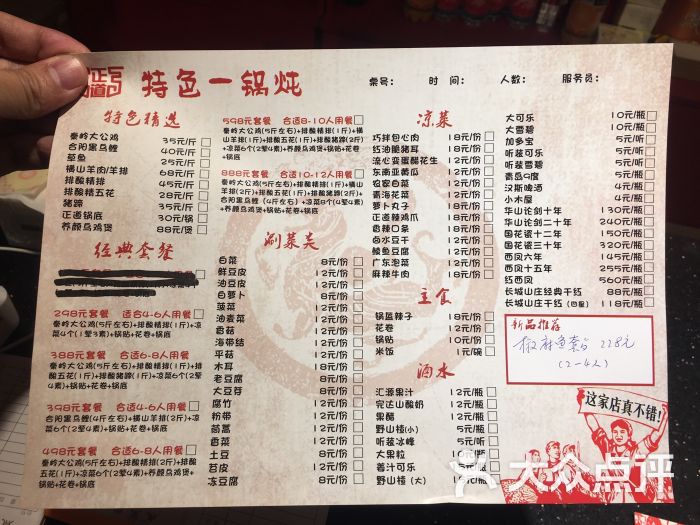 正道
特色一锅炖
桌号: 时间: 人数: 服务员:
特色精选
秦岭大公鸡 35元/斤
合阳黑乌鲤 40元/斤
草鱼 25元/斤
横山羊肉/羊排 68元/斤
排酸精排 45元/斤
排酸精五花 28元/斤
猪蹄 35元/斤
正道锅底 30元/锅
养颜乌鸡煲 88元/煲
经典套餐
298元套餐 适合4-6人用餐
秦岭大公鸡(5斤左右)+排酸精排(1斤)+凉
菜4个(1荤3素)+锅贴+花卷+锅底
388元套餐 适合6-8人用餐
秦岭大公鸡(5斤左右)+排酸精排(1斤)+排
酸五花(1斤)+排酸猪蹄(1斤)+凉菜6个(2荤
4素)+锅贴+花卷+锅底
398元套餐 合适4-6人用餐
合阳黑乌鲤(4斤左右)+横山羊排(2斤)+凉
菜6个(2荤4素)+锅贴+花卷+锅底
498元套餐 合适6-8人用餐
秦岭大公鸡(5斤左右)+排酸精排(2斤)+排酸
五花(1斤)+凉菜6个(2荤4素)+养颜乌鸡煲+锅
贴+花卷+锅底
598元套餐 合适8-10人用餐
秦岭大公鸡(5斤左右)+排酸精排(1斤)+横
山羊排(1斤)+排酸五花(1斤)+排酸猪蹄(2斤)
+凉菜6个(2荤4素)+养颜乌鸡煲+锅贴+花卷
+锅底
888元套餐 合适10-12人用餐
秦岭大公鸡(5斤左右)+排酸精排(1斤)+横山
羊排(2斤)+排酸五花(2斤)+排酸猪蹄(2斤)+
合阳黑乌鲤(4斤左右)+凉菜8个(4荤4素)
+养颜乌鸡煲+锅贴+花卷+锅底
涮菜类
白菜 8元/份
鲜豆皮 12元/份
油豆皮 12元/份
白萝卜 8元/份
菠菜 12元/份
油麦菜 12元/份
香菇 12元/份
海带结 12元/份
平菇 12元/份
木耳 12元/份
老豆腐 8元/份
大豆芽 8元/份
腐竹 12元/份
粉带 12元/份
茼蒿 12元/份
香菜 12元/份
土豆 8元/份
苕皮 12元/份
冻豆腐 8元/份
凉菜
巧拌包心肉 18元/份
红油脆猪耳 18元/份
流心变蛋醋花生 12元/份
东南亚黄瓜 12元/份
农家白菜 12元/份
青海花菜 12元/份
萝卜丸子 12元/份
正道辣鸡爪 18元/份
香辣口条 18元/份
卤水豆干 12元/份
鲮鱼豆腐 12元/份
广东泡菜 12元/份
麻辣牛肉 18元/份
主食
锅盔辣子 18元/份
花卷 12元/份
锅贴 10元/份
米饭 1元/碗
酒水
汇源果汁 12元/瓶
完达山酸奶 12元/瓶
果醋 12元/瓶
野山楂(小) 5元/瓶
听装冰峰 5元/听
大果粒 10元/瓶
姜汁可乐 15元/瓶
野山楂(大) 18元/瓶
大可乐 10元/瓶
大雪碧 10元/瓶
加多宝 5元/听
听装可乐 5元/听
听装雪碧 5元/听
青岛9度 5元/瓶
汉斯啤酒 4元/瓶
小木屋 4元/瓶
华山论剑十年 138元/瓶
华山论剑二十年 240元/瓶
国花瓷十二年 198元/瓶
国花瓷三十年 320元/瓶
西凤六年 145元/瓶
西凤十五年 255元/瓶
红西凤 560元/瓶
长城山庄经典干红 88元/瓶
长城山庄干红 118元/瓶
新品推荐
椒麻鱼套餐 228元
(2-4人)
这家店真不错!
大众点评